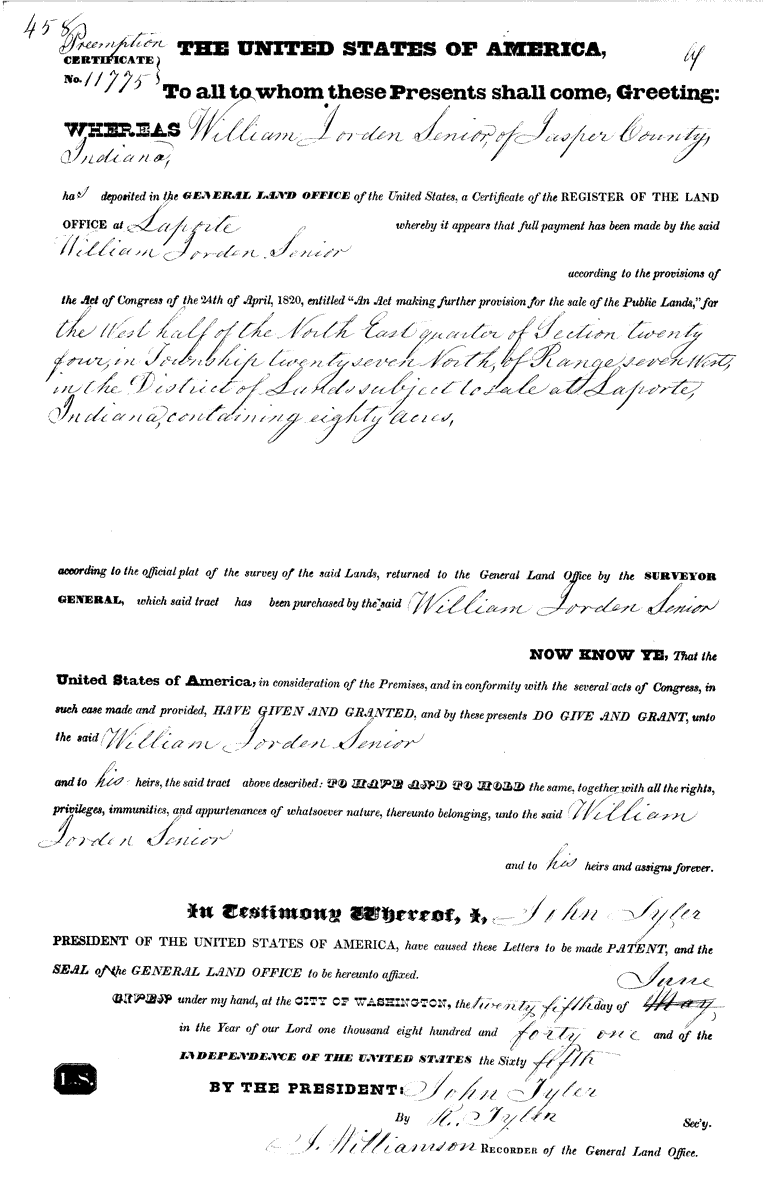 458
Preemption
CERTIFICATE
No. 11775
THE UNITED STATES OF AMERICA,
To all to whom these Presents shall come, Greeting:
WHEREAS William Jorden Senior, of Jasper County,
Indiana,
has deposited in the GENERAL LAND OFFICE of the United States, a Certificate of the REGISTER OF THE LAND
OFFICE at Laporte whereby it appears that full payment has been made by the said
William Jorden Senior
according to the provisions of
the Act of Congress of the 24th of April, 1820, entitled "An Act making further provision for the sale of the Public Lands," for
the West half of the North East quarter of Section twenty
four, in Township twenty seven North, of Range seven West,
in the District of Lands subject to sale at Laporte,
Indiana, containing eighty acres,
according to the official plat of the survey of the said Lands, returned to the General Land Office by the SURVEYOR
GENERAL, which said tract has been purchased by the said William Jorden Senior
NOW KNOW YE, That the
United States of America, in consideration of the Premises, and in conformity with the several acts of Congress, in
such case made and provided, HAVE GIVEN AND GRANTED, and by these presents DO GIVE AND GRANT, unto
the said William Jorden Senior
and to his heirs, the said tract above described: TO HAVE AND TO HOLD the same, together with all the rights,
privileges, immunities, and appurtenances of whatsoever nature, thereunto belonging, unto the said William
Jorden Senior
and to his heirs and assigns forever.
In Testimony Whereof, I, John Tyler
PRESIDENT OF THE UNITED STATES OF AMERICA, have caused these Letters to be made PATENT, and the
SEAL of the GENERAL LAND OFFICE to be hereunto affixed.
June
GIVEN under my hand, at the CITY OF WASHINGTON, the twenty fifth day of May,
in the Year of our Lord one thousand eight hundred and forty one and of the
INDEPENDENCE OF THE UNITED STATES the Sixty fifth
L.S.
BY THE PRESIDENT: John Tyler
By R. Tyler Sec'y.
J. Williamson RECORDER of the General Land Office.